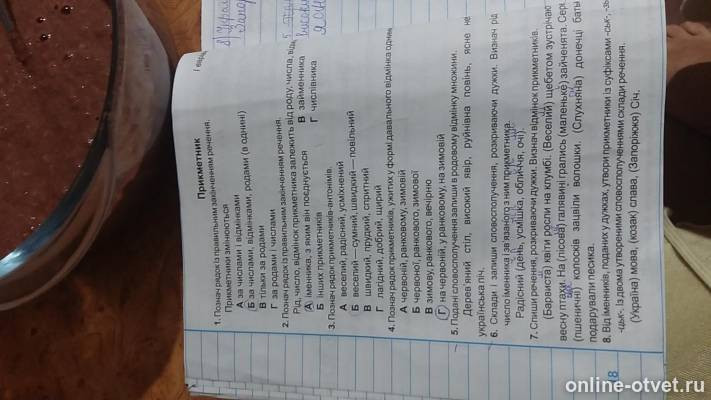 І варіант
Прикметник
1. Познач рядок із правильним закінченням речення.
Прикметники змінюються
А за числами і відмінками
Б за числами, відмінками, родами (в однині)
В тільки за родами
Г за родами і числами
2. Познач рядок із правильним закінченням речення.
Рід, число, відмінок прикметника залежить від роду, числа, від
А іменника, з яким він поєднується
В займенника
Б інших прикметників
Г числівника
3. Познач рядок прикметників-антонімів.
А веселий, радісний, усміхнений
Б веселий — сумний, швидкий — повільний
В швидкий, прудкий, спритний
Г лагідний, добрий, щирий
4. Познач рядок прикметників, ужитих у формі давального відмінка однин
А червоній, ранковому, зимовій
Б червоної, ранкового, зимової
В зимову, ранкового, вечірню
Г на червоній, у ранковому, на зимовій
5. Подані словосполучення запиши в родовому відмінку множини.
Дерев'яний стіл, високий явір, руйнівна повінь, ясне не
українська ніч.
6. Склади і запиши словосполучення, розкриваючи дужки. Визнач рід
число іменника і зв'язаного з ним прикметника.
Радісний (день, усмішка, обличчя, очі).
7. Спиши речення, розкриваючи дужки. Визнач відмінок прикметників.
(Барвиста) квіти росли на клумбі. (Веселий) щебетом зустрічаю
весну птахи. На (лісова) галявині грались (маленьке) зайченята. Сере
(пшеничні) колосків зацвіли волошки. (Слухняна) донечці бать
подарували песика.
8. Від іменників, поданих у дужках, утвори прикметники із суфіксами -ськ-, -зь
-цьк-. Із двома утвореними словосполученнями склади речення.
(Україна) мова, (козак) слава, (Запоріжжя) Січ.
8
online-otvet.ru